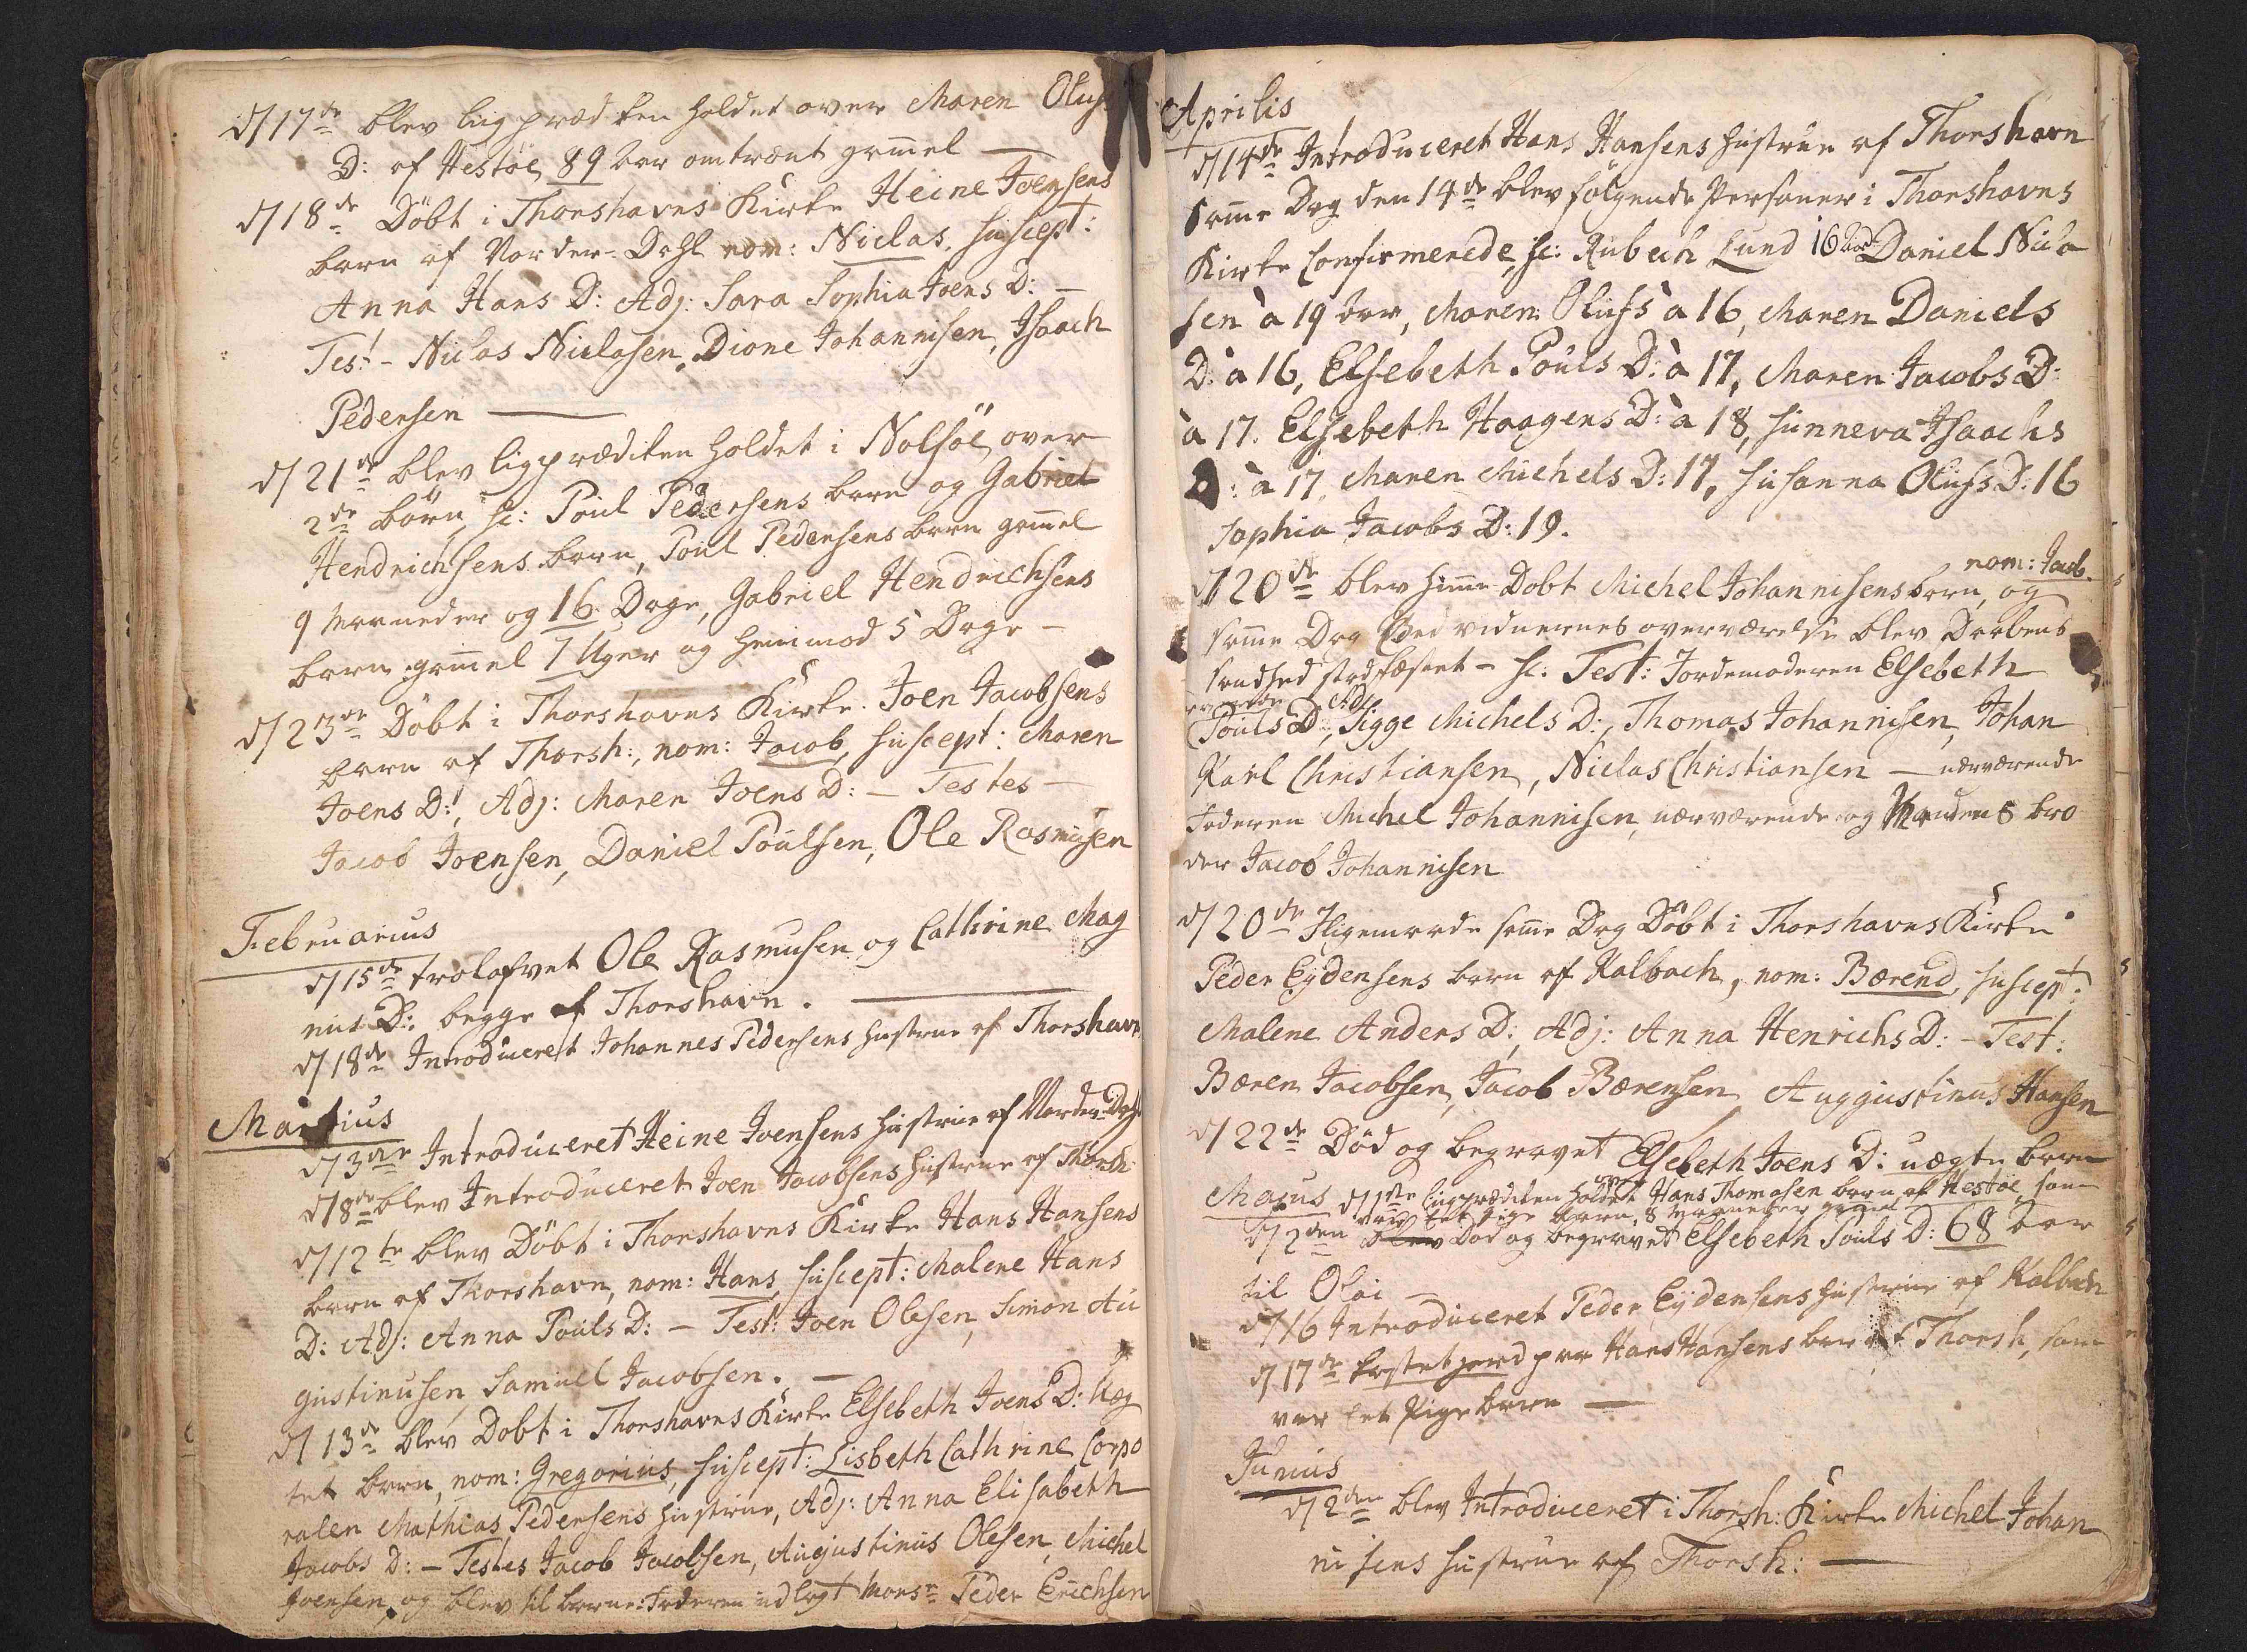 d/17de blev liigprædiken holdet over Maren Olufs
D: af Hestöe, 89 aar omtrent gammel —
d/18de Döbt i Thorshavns Kirke Heine Joensens
barn af Norder-Dahl nom: Niclas, suscept:
Anna Hans D: Adj: Sara Sophia Joens D: —
Test - Niclas Niclasen, Dione Johannisen, Isaach
Pedersen —
d/21de blev ligprædiken holdet i Nolsöe over
2de börn, sc: Poul Pedersens barn og Gabriel
Hendrichsens barn, Poul Pedersens barn gammel
9 Maaneder og 16 Dage, Gabriel Hendrichsens
barn gammel 7 Uger og henimod 5 Dage —
d/23de Döbt i Thorshavns Kirke Joen Jacobsens
barn af Thorsh:, nom: Jacob, suscept: Maren
Joens D:, Adj: Maren Joens D: — Testes —
Jacob Joensen, Daniel Poulsen, Ole Rasmusen
Februarius
d/15de trolofvet Ole Rasmusen og Cathrine Mag
nus D: begge af Thorshavn. —
d/18de Introduceret Johannes Pedersens hustrue af Thorshavn
Martius
d/3die Introduceret Heine Joensens hustrue af Norder-Dahl
d/8de blev Introduceret Joen Jacobsens hustrue af Thorsh:
d/12te blev Döbt i Thorshavns Kirke Hans Hansens
barn af Thorshavn, nom: Hans, suscept: Malene Hans
D: Adj: Anna Pouls D: — Test: Joen Olesen, Simon Au
gustinusen, Samuel Jacobsen. —
d/13de blev Dobt i Thorshavns Kirke Elsebeth Joens D: Uæg
tet barn, nom: Gregorius, suscept: Lisbeth Cathrine, Corpo
ralen Mathias Pedersens hustrue, Adj: Anna Elisabeth
Jacobs D: — Testes Jacob Jacobsen, Augustinus Olesen, Michel
Joensen, og blev til barne-faderen udlagt Monsr Peder Erichsen
Aprilis
d/14de Introduceret Hans Hansens hustrue af Thorshavn
samme Dag den 14de blev fölgende Personer i Thorshavns
Kirke Confirmerede, sc: Rubech Lund 16 aar Daniel Nicla
sen à 19 aar, Maren Olufs à 16, Maren Daniels
D: à 16, Elsebeth Pouls D: à 17, Maren Jacobs D:
à 17. Elsebeth Haagens D: à 18, Sunneva Isaachs
D: à 17, Maren Michels D: 17, Susanna Olufs D: 16
Sophia Jacobs D: 19.
nom: Jacob.
d/20de blev hiemme Dobt Michel Johannisens barn, og
samme Dag ved vidnernes overværelse blev Daabens
sandhed stadfæstet — sc: Test: Jordemoderen Elsebeth
Adj:
Pouls D:, Sigge Michels D:, Thomas Johannisen, Johan
Karl Christiansen, Niclas Christiansen — nærværende
Faderen Michel Johannisen, nærværende og Mandens bro
der Jacob Johannisen
d/20de Iligemaade samme Dag Döbt i Thorshavns Kirke
Peder Eydensens barn af Kalbach, nom: Bærend, suscept:
Malene Anders D:, Adj: Anna Henrichs D: — Test:
Bæren Jacobsen, Jacob Bærensen, Auggustinus Hansen
d/22de Död og begravet Elsebeth Joens D: uægte barn
Majus d/1ste Liigprædiken holdet over Hans Thomasen barn af Hestöe, som
var et Pige barn, 8 Maaneder gammel
d/2den blev Död og begravet Elsebeth Pouls D: 68 aar
til Olai
d/16 Introduceret Peder Eydensens hustrue af Kalbach
d/17de kastet jord paa Hans Hansens barn af Thorsh, som
var et Pige barn —
Junius
d/2den blev Introduceret i Thorsh: Kirke Michel Johan
nisens hustrue af Thorsh: —